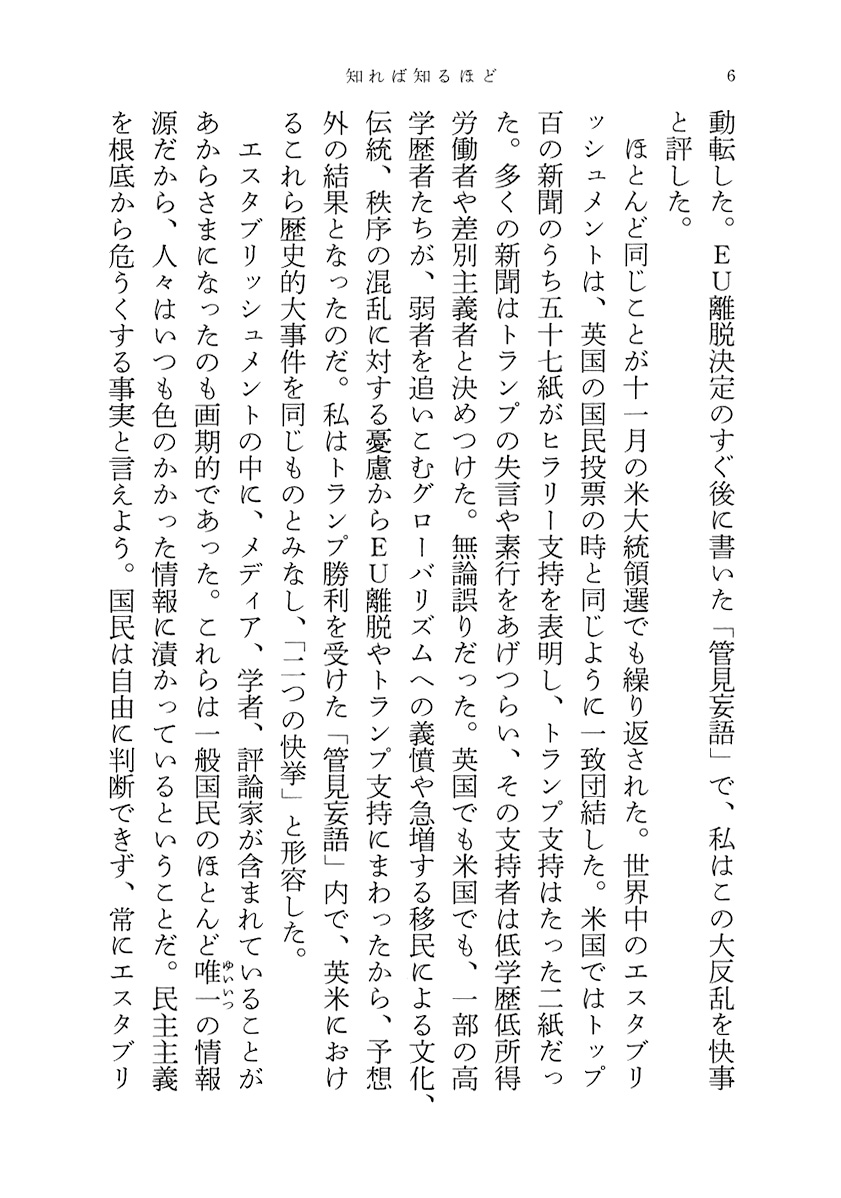 知れば知るほど
6
動転した。ＥＵ離脱決定のすぐ後に書いた「管見妄語」で、私はこの大反乱を快事
と評した。
ほとんど同じことが十一月の米大統領選でも繰り返された。世界中のエスタブリ
ッシュメントは、英国の国民投票の時と同じように一致団結した。米国ではトップ
百の新聞のうち五十七紙がヒラリー支持を表明し、トランプ支持はたった二紙だっ
た。多くの新聞はトランプの失言や素行をあげつらい、その支持者は低学歴低所得
労働者や差別主義者と決めつけた。無論誤りだった。英国でも米国でも、一部の高
学歴者たちが、弱者を追いこむグローバリズムへの義憤や急増する移民による文化、
伝統、秩序の混乱に対する憂慮からＥＵ離脱やトランプ支持にまわったから、予想
外の結果となったのだ。私はトランプ勝利を受けた「管見妄語」内で、英米におけ
るこれら歴史的大事件を同じものとみなし、「二つの快挙」と形容した。
エスタブリッシュメントの中に、メディア、学者、評論家が含まれていることが
あからさまになったのも画期的であった。これらは一般国民のほとんど唯一の情報
ゆいいつ
源だから、人々はいつも色のかかった情報に漬かっているということだ。民主主義
を根底から危うくする事実と言えよう。国民は自由に判断できず、常にエスタブリ